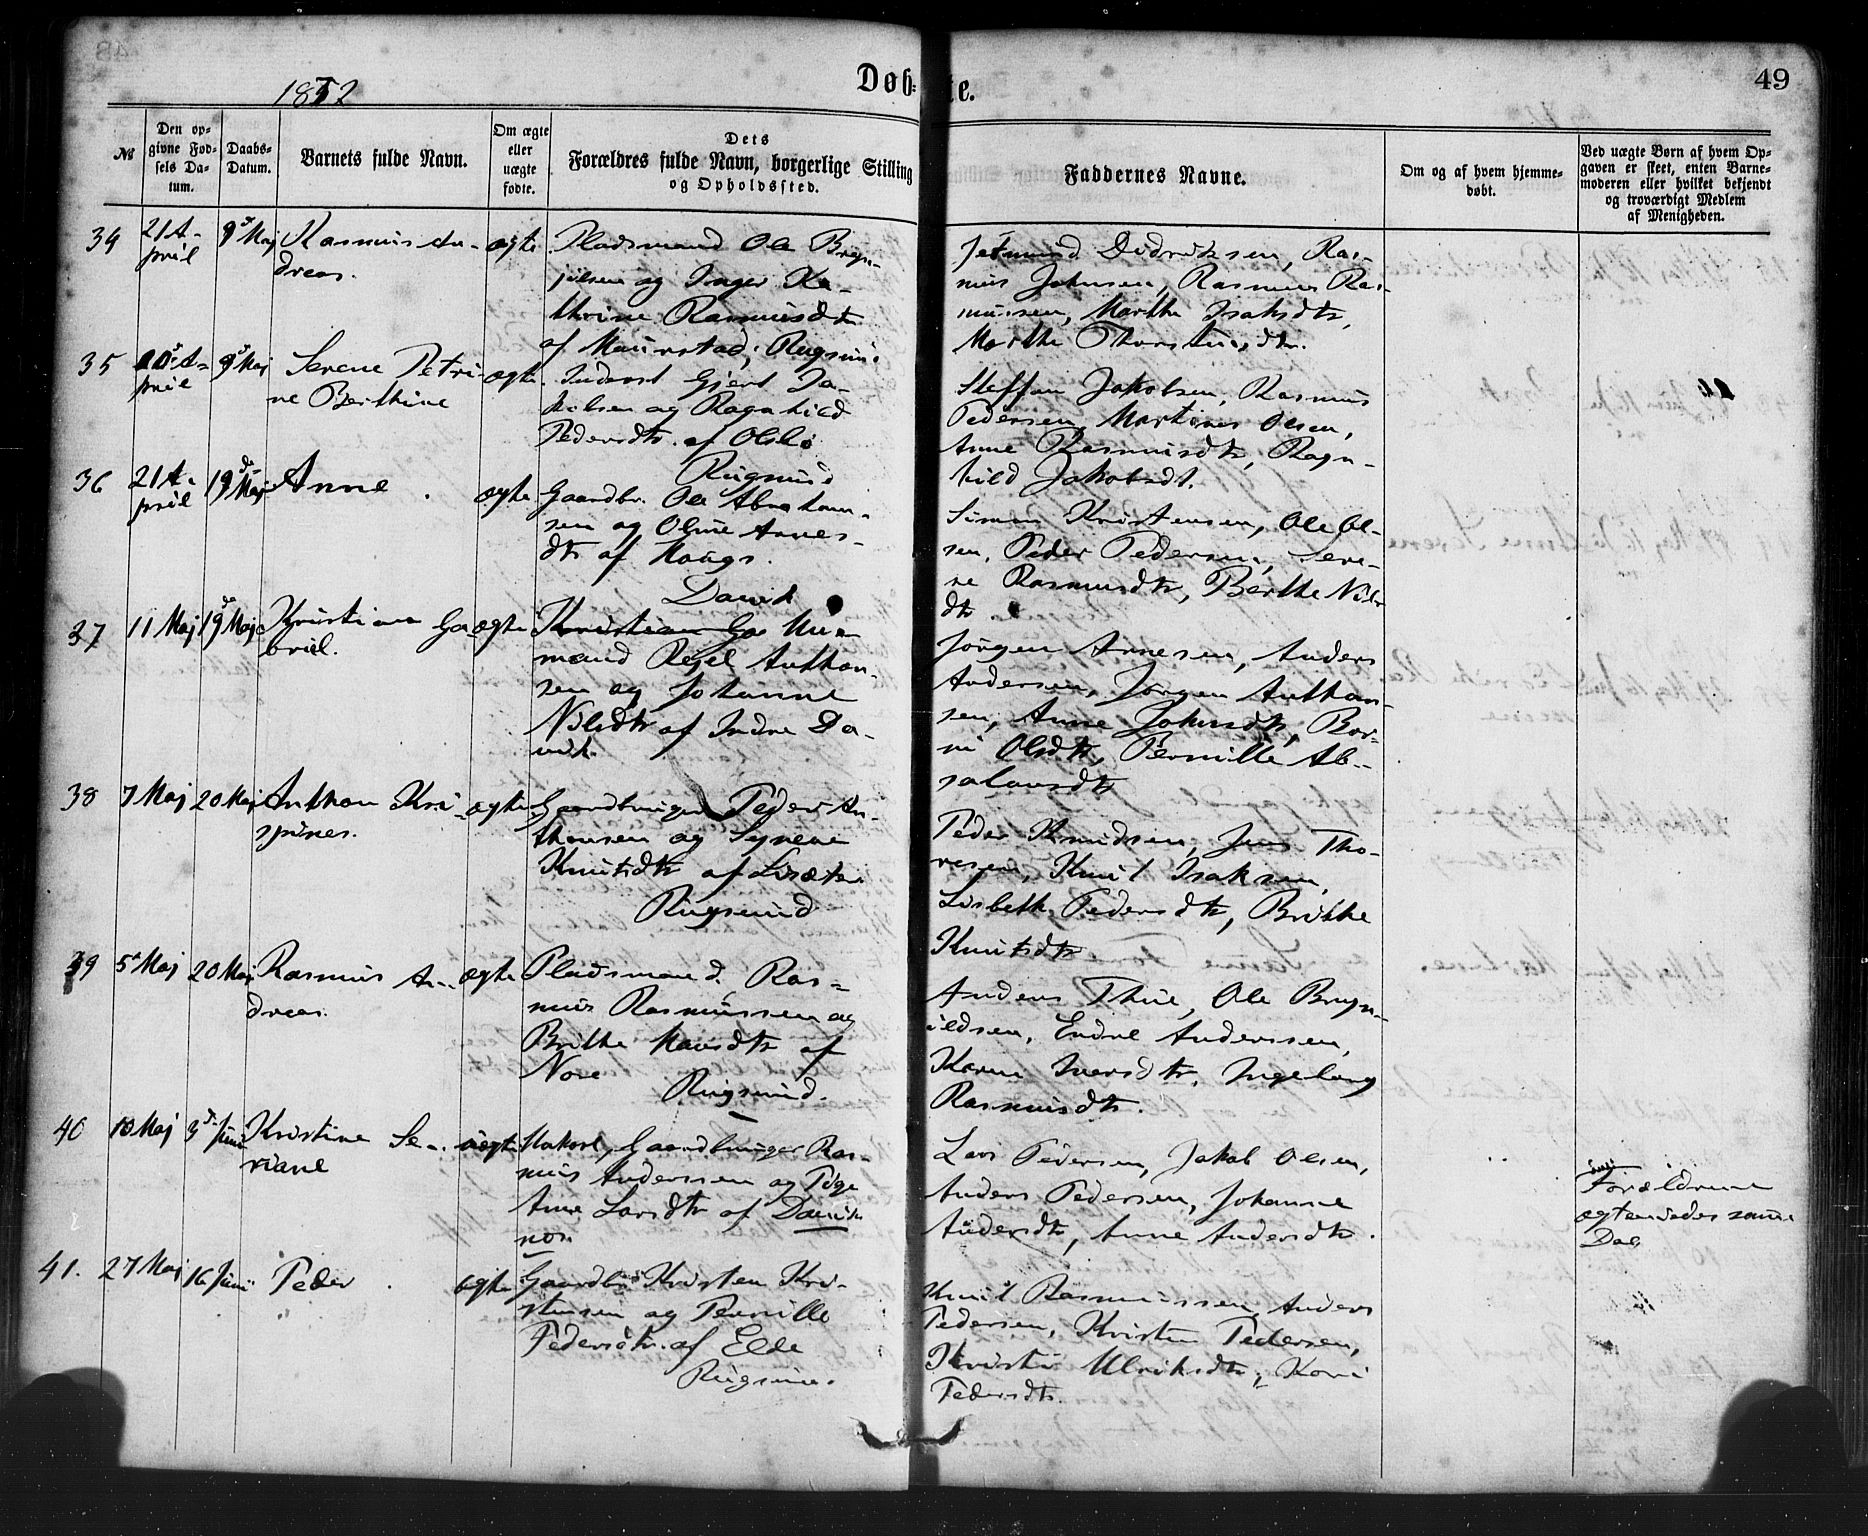 1872
Døb-
te.
49
№
Den op-
givne Fød-
sels Da-
tum.
Daabs-
Datum.
Barnets fulde Navn.
Om ægte
eller
uægte
fødte.
Dets
Forældres fulde Navn, borgerlige Stilling
og Opholdssted.
Faddernes Navne.
Om og af hvem hjemme-
døbt.
Ved uægte Børn af hvem Op-
gaven er skeet, enten Barne-
moderen eller hvilket bekjendt
og troværdigt Medlem
af Menigheden.
34
21 A-
pril
9de Maj
Rasmus An-
dreas.
ægte
Pladsmand Ole Bryn-
julsen og Inger Ka-
thrine Rasmusdtr
af Maurstad, Rugsund
Didriksen, Ras-
mus Johnsen, Rasmus Ras-
mussen, Marthe Isaksdtr,
Marthe Thorsteinsdtr.
35
A-
pril
9de Maj
Serene Petri-
ne Berthine
ægte
Inderst Gjert Ja-
kobsen og Ragnhild
Pedersdtr. af
Rugsund
Steffen Jakobsen, Rasmus
Pedersen, Martinus Olsen,
Anne Rasmusdtr, Ragn-
hild Jakobsdt.
36
21 A-
pril
19de Maj
Anne
ægte
Gaardbr. Ole Abraham-
sen og Oline Annes-
dtr af Haugs.
Davik
Simon Kristensen, Ole Ol-
sen, Peder Pedersen, Sere-
ne Rasmusdtr, Berthe Nils-
dtr.
37
11 Maj
19de Maj
Kristian Ga-
briel.
ægte
Kristian Ga Huus-
mand Anthon-
sen og Johanne
Nilsdtr af Indre Da-
vik.
Jørgen Arnesen, Anders
Andersen, Jørgen Anthon-
sen, Anne Johnsdtr,
Olsdtr, Pernille Ab-
salonsdtr
38
7 Maj
20 Maj
Anthon Kri-
spines.
ægte
Gaardbruger Peder An-
thonsen og Synene
Knutsdtr af Lisæter
Rugsund
Peder Knudsen, Jens Tho-
resen, Knut Isaksen,
Lisbeth Pedersdtr, Brithe
Knutsdtr
39
5 Maj
20 Maj
Rasmus An-
dreas.
ægte
Pladsmand Ras-
mus Rasmussen og
Brithe Hansdtr af
Nore
Rugsund.
Anders Thue, Ole Bryn-
ildsen, Endre Anderssen,
Karen Iversdtr, Ingeborg
Rasmusdtr.
40
10 Maj
3de Juni
Kristine Se-
riane
uægte
Gaardbruger Ras-
mus Anderssen og Pige
Anne Larsdtr af Davik
Lars Pedersen, Jakob Olsen,
Anders Pedersen, Johanne
Andersdtr, Anne Andersdtr.
Forældrene
ægteviedes samme
Dag
41.
27 Maj
16 Juni
Peder
ægte
Gaardbr. Kristen Kri-
stensen og Pernille
Pedersdtr. af Elde
Rugsund.
Knut Rasmussen, Anders
Pedersen, Kristen Pedersen,
Kristi Ulriksdtr, Kari
Pedersdtr.